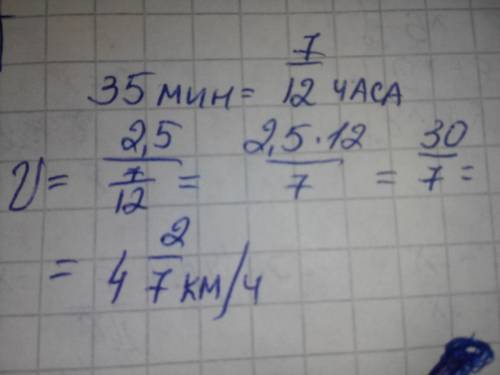 35 мин = 7/12 часа
V = 2,5/(7/12) = 2,5·12/7 = 30/7 =
= 4 2/7 км/ч